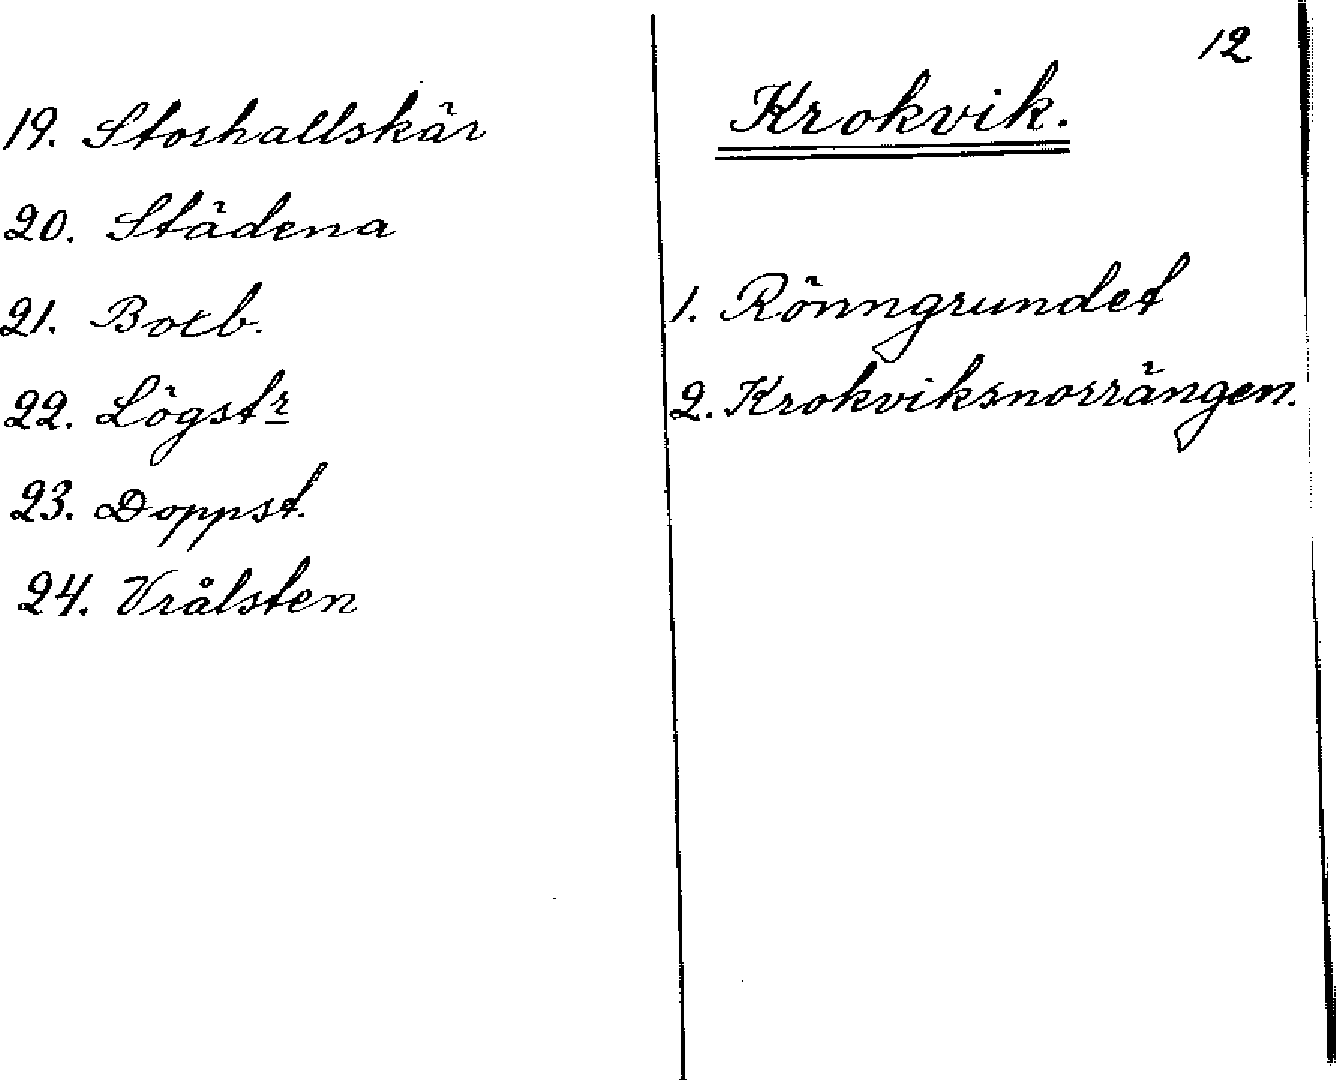 19. Storhallskär
20. Städena
21. Boeb.
22. Lögstr
23. Doppst.
24. Vrålsten
12
Krokvik.
1. Rönngrundet
2. Krokviksnorrängen.